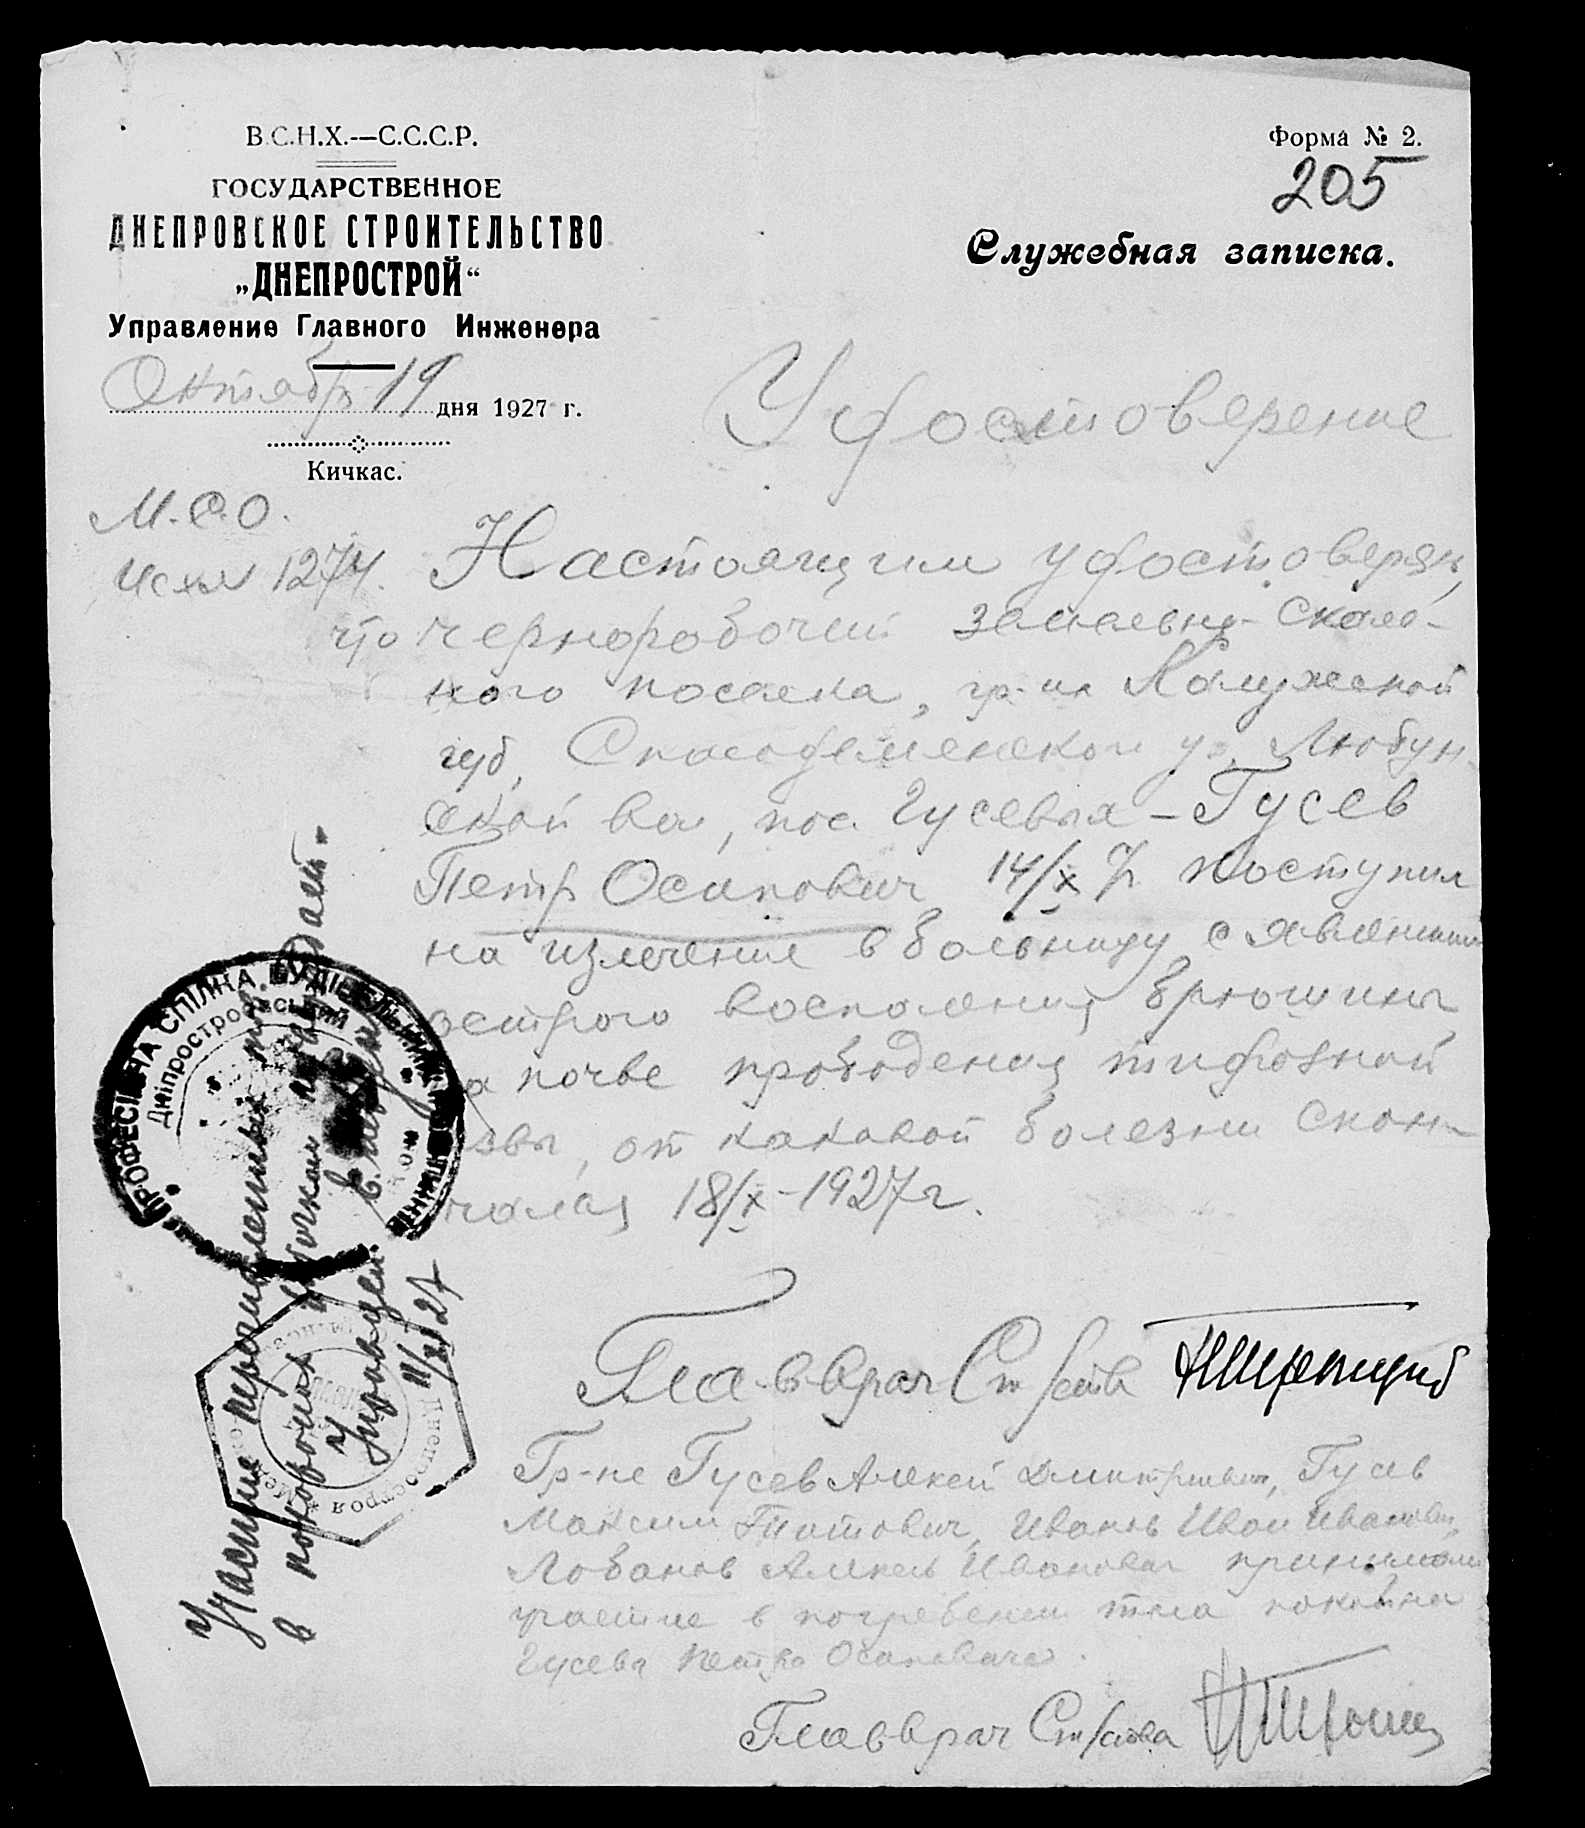 В.С.Н.Х.—С.С.С.Р.
ГОСУДАРСТВЕННОЕ
ДНЕПРОВСКОЕ СТРОИТЕЛЬСТВО
„ДНЕПРОСТРОЙ“
Управление Главного Инженера
Октябрь 19 дня 1927 г.
Кичкас.
Форма № 2.
205
Служебная записка.
М.С.О.
1274.
Удостоверение
Настоящим удостоверяю,
что чернорабочий земельно-скаль-
ного поселка, гр-ин Калужской
губ, Спасодеменской у. Любун-
ской вол, пос. Гусевка - Гусев
Петр Осипович 14/X поступил
на излечение в больницу с явлениями
острого воспаления брюшины
на почве прободения тифозной
язвы, от каковой болезни скон-
чался 18/X-1927 г.
Главврач Стр/ства
Гр-не Гусев Алексей Дмитриевич, Гусев
Максим Титович, Иванов Иван Иванович,
Лобанов Алексей Иванович принимали
участие в погребении тела покойна
Гусева Петра Осиповича.
Главврач Стр/ства
ПРОФЕСІЙНА СПІЛКА БУДІВЕЛЬНИХ
Дніпростроєвський
Днепростроя
Участие перечисленных тов.
в похоронах
11/XI 27